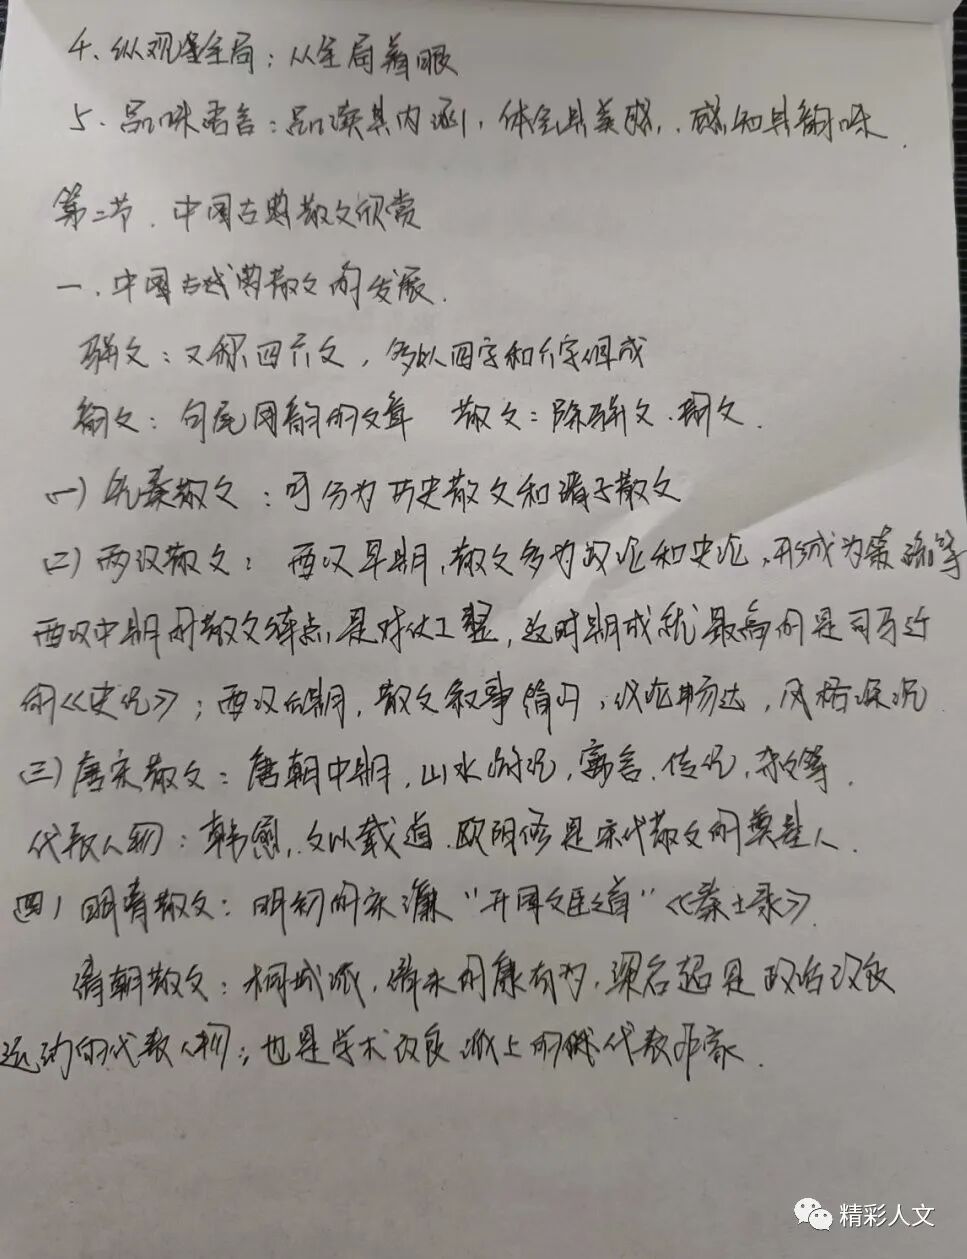 4、纵观全局：从全局着眼
5、品味语言：品读其内涵，体会其美感，感知其韵味.
第二节．中国古典散文欣赏
一．中国古典散文的发展.
骈文：又称四六文，多以四字和六字组成
韵文：句尾用韵的文章　散文：除骈文、韵文.
(一)先秦散文：可分为历史散文和诸子散文
(二)两汉散文：西汉早期，散文多为政论和史论，形成为策疏等
西汉中期的散文特点是对仗工整，这时期成就最高的是司马迁
的《史记》；西汉后期，散文叙事简明，议论畅达，风格深沉
(三)唐宋散文：唐朝中期，山水游记，寓言、传记，杂文等.
代表人物：韩愈，文以载道．欧阳修是宋代散文的奠基人.
(四)明清散文：明初的宋濂“开国文臣之首”《秦士录》
清朝散文：桐城派，清末的康有为，梁启超是政治改良
运动的代表人物；也是学术改良派上的代表作家.
精彩人文